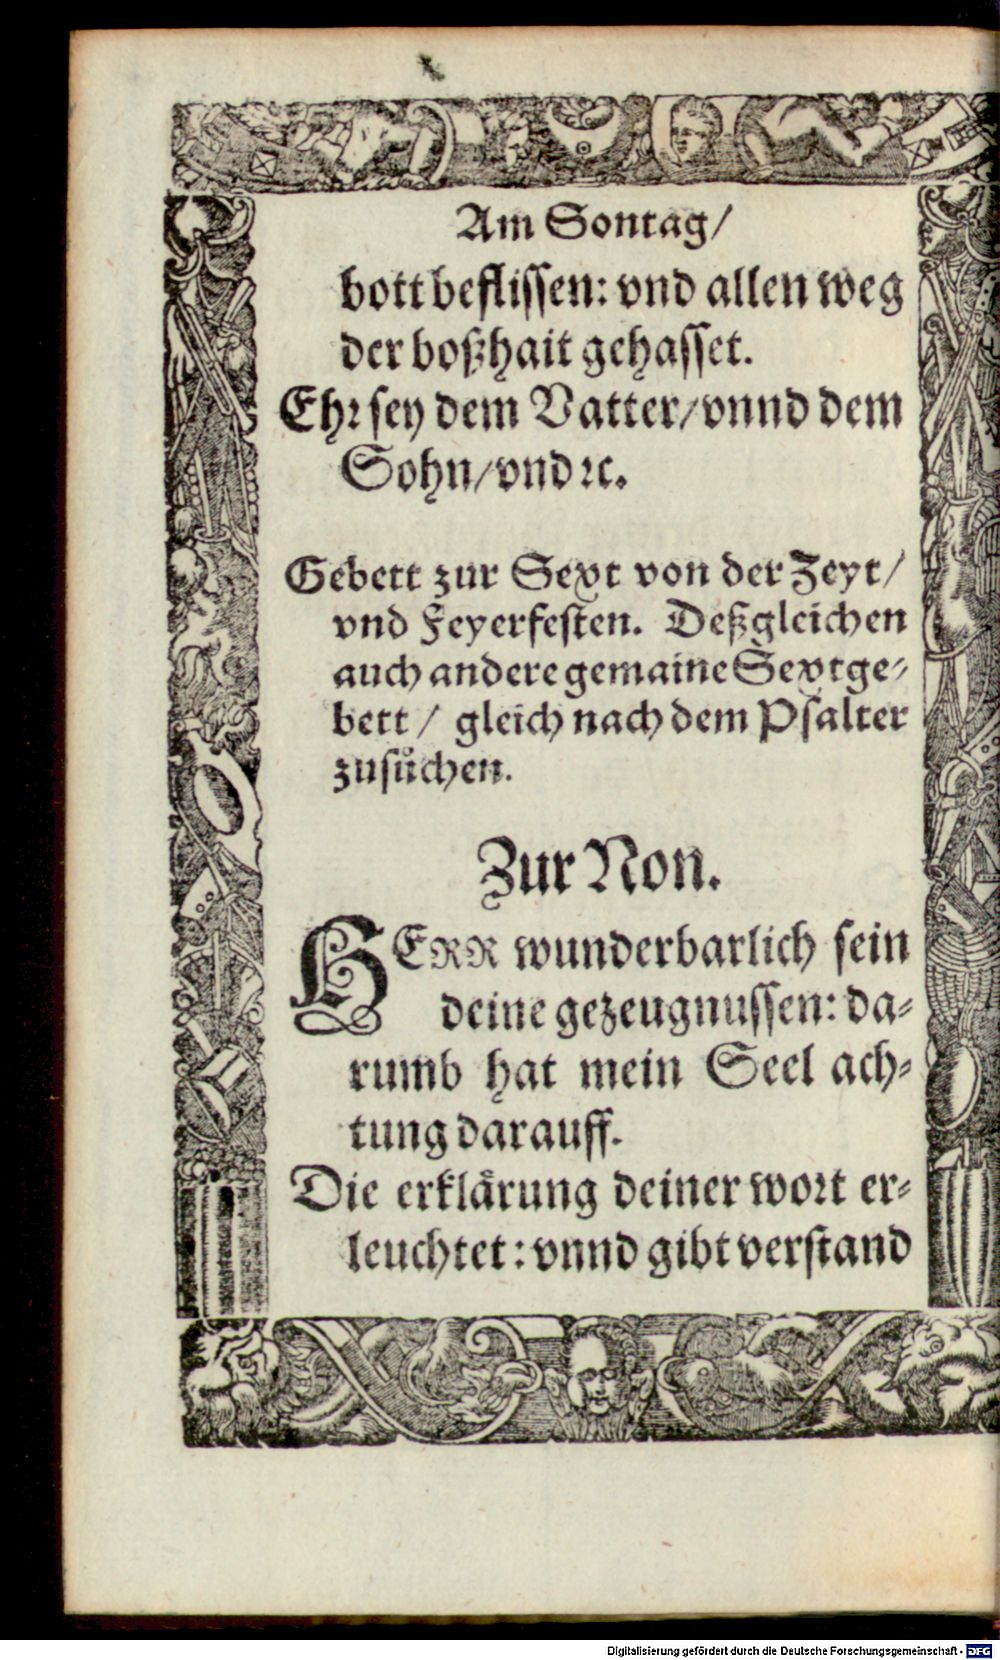 Am Sontag/
bott beflissen: vnd allen weg
der boßhait gehasset.
Ehr sey dem Vatter/vnnd dem
Sohn/vnd ꝛc.
Gebett zur Sext von der Zeyt/
vnd Feyerfesten. Deßgleichen
auch andere gemaine Sextge-
bett / gleich nach dem Psalter
zusůchen.
Zur Non.
HERR wunderbarlich sein
deine gezeugnussen: da-
rumb hat mein Seel ach-
tung darauff.
Die erklärung deiner wort er-
leuchtet: vnnd gibt verstand
Digitalisierung gefördert durch die Deutsche Forschungsgemeinschaft - DFG